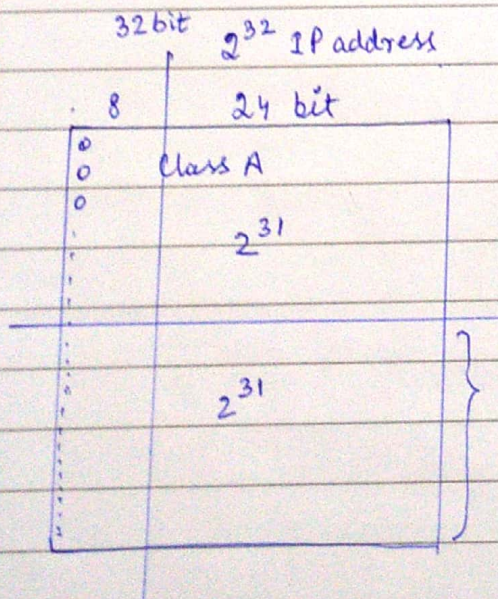 32 bit
2³² IP address
8 24 bit
0
0 Class A
0
2³¹
2³¹